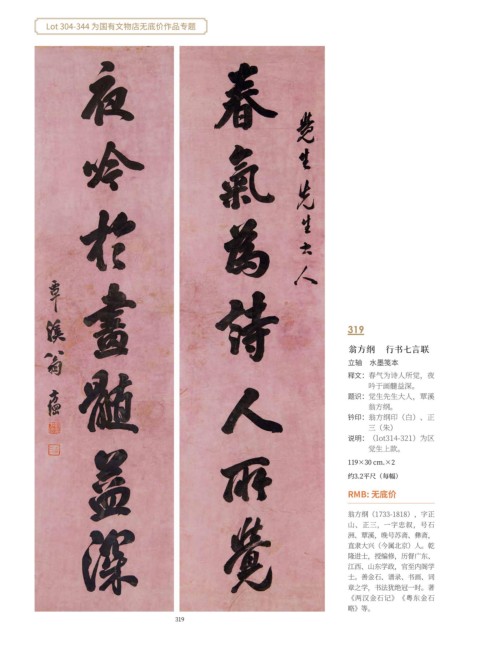 Lot 304-344 为国有文物店无底价作品专题
覺生先生大人
春氣為詩人所覺
夜吟於畫髓益深
覃溪翁方綱
319
翁方纲 行书七言联
立轴 水墨笺本
释文：春气为诗人所觉，夜
吟于画髓益深。
题识：觉生先生大人，覃溪
翁方纲。
钤印：翁方纲印（白）、正
三（朱）
说明：（lot314-321）为区
觉生上款。
119×30 cm.×2
约3.2平尺（每幅）
RMB: 无底价
翁方纲（1733-1818），字正
山、正三，一字忠叙，号石
洲、覃溪，晚号苏斋、彝斋，
直隶大兴（今属北京）人，乾
隆进士，授编修，历督广东、
江西、山东学政，官至内阁学
士。善金石、谱录、书画、词
章之学，书法犹绝冠一时。著
《两汉金石记》《粤东金石
略》等。
319